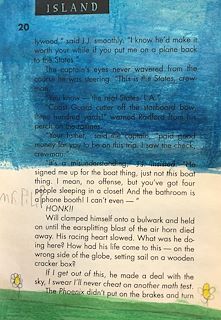 ISLAND
20
lywood," said J.J. smoothly. "I know he'd make it
worth your while if you put me on a plane back
to the States."
The captain's eyes never wavered from the
course he was steering. "This is the States, crew-
man."
"You know — the real States. L.A."
"Coast Guard cutter off the starboard bow,
three hundred yards!" warned Radford from his
perch on the ratlines.
"Your father," said the captain, "paid good
money for you to be on this trip. I saw the check,
crewman."
"It's a misunderstanding," J.J. insisted. "He
signed me up for the boat thing, just not this boat
thing. I mean, no offense, but you've got four
people sleeping in a closet! And the bathroom is
a phone booth! I can't even — "
HONK!!
Will clamped himself onto a bulwark and held
on until the earsplitting blast of the air horn died
away. His racing heart slowed. What was he do-
ing here? How had his life come to this — on the
wrong side of the globe, setting sail on a wooden
cracker box?
If I get out of this, he made a deal with the
sky, I swear I'll never cheat on another math test.
The Phoenix didn't put on the brakes and turn